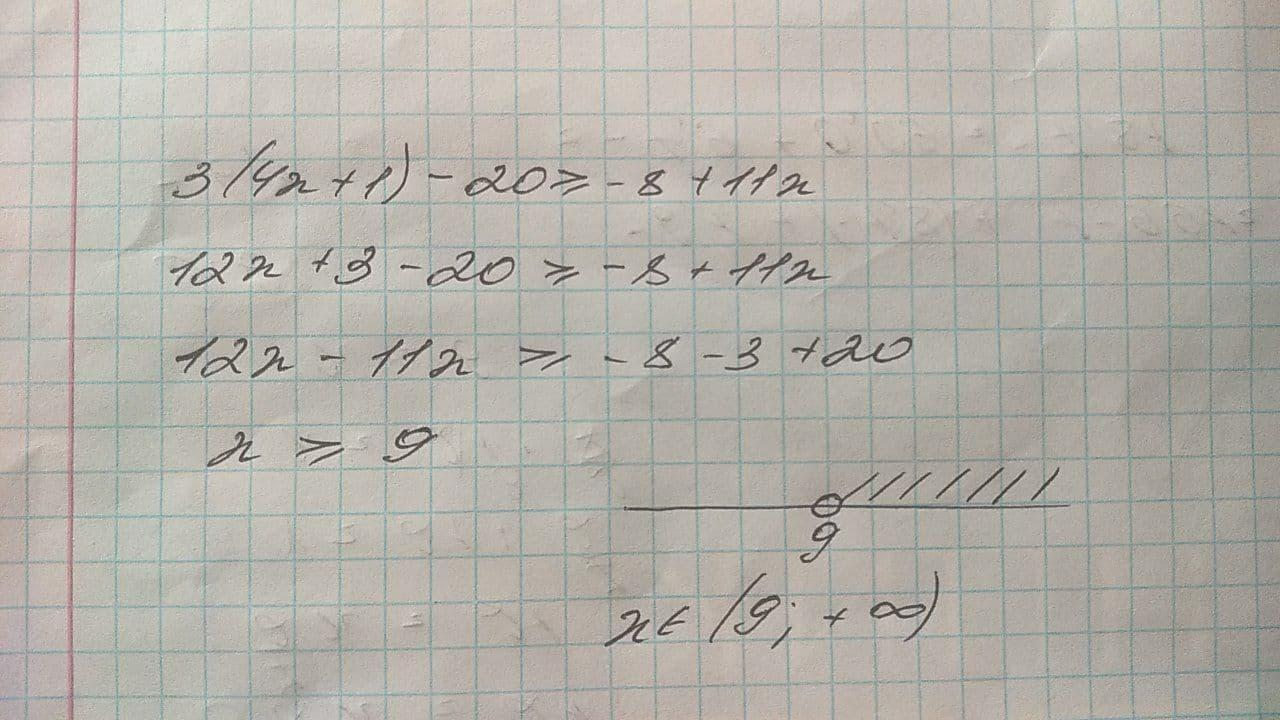 3(4x+1)-20≥-8+11x
12x+3-20≥-8+11x
12x-11x≥-8-3+20
x≥9
9
x∈(9;+∞)